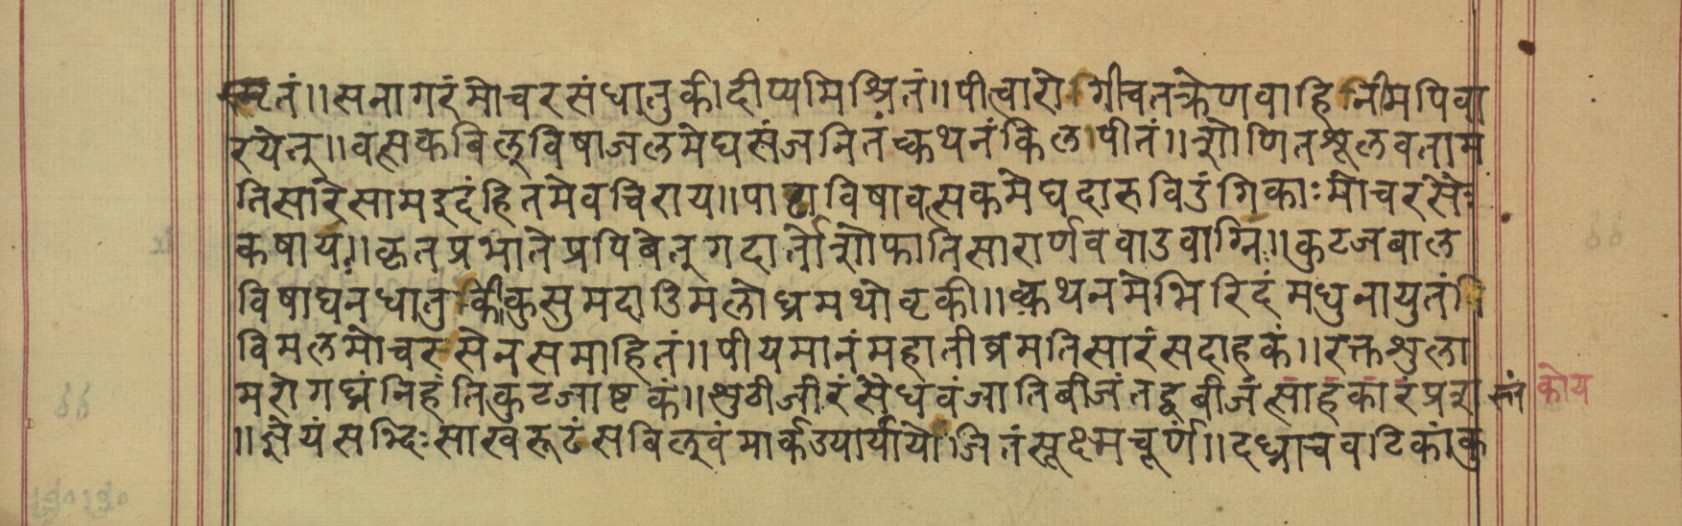 स्मृतं॥सनागरंमोचरसंधातुकीदीप्यमिश्रितं॥पीत्वारोगीचतक्रेणवाहिनीमपिवा
रयेत्॥वत्सकबिलुविषाजलमेघसंजनितंक्वथनंकिलपीतं॥शोणितश्रूलवताम
तिसारेसामइदंहितमेवचिराय॥पाठाविषावत्सकमेघदारुविडंगिकाःमोचरसेः
कषाय॥कृतप्रभातेप्रपिबेत्गदार्तोशोफातिसारार्णववाडवाग्नि॥कुटजबाल
विषाघनधातुकीकुसुमदाडिमलोध्रमथोवृकी॥क्वथनमेभिरिदंमधुनायुतं
विमलमोचरसेनसमाहितं॥पीयमानंमहातीव्रमतिसारंसदाहकं॥रक्तश्रुला
मरोगघ्नंनिहंतिकुटजाष्टकं॥श्रुठीजीरंसैधवंजातिबीजंतद्वबीजंसाहकारंप्रश स्तं कोय
॥ज्ञेयंसद्भिःसाखरूटंसबिलुवंमार्कडयार्यायोजितंसूक्ष्मचूर्ण॥दध्नाचवटिकांकु